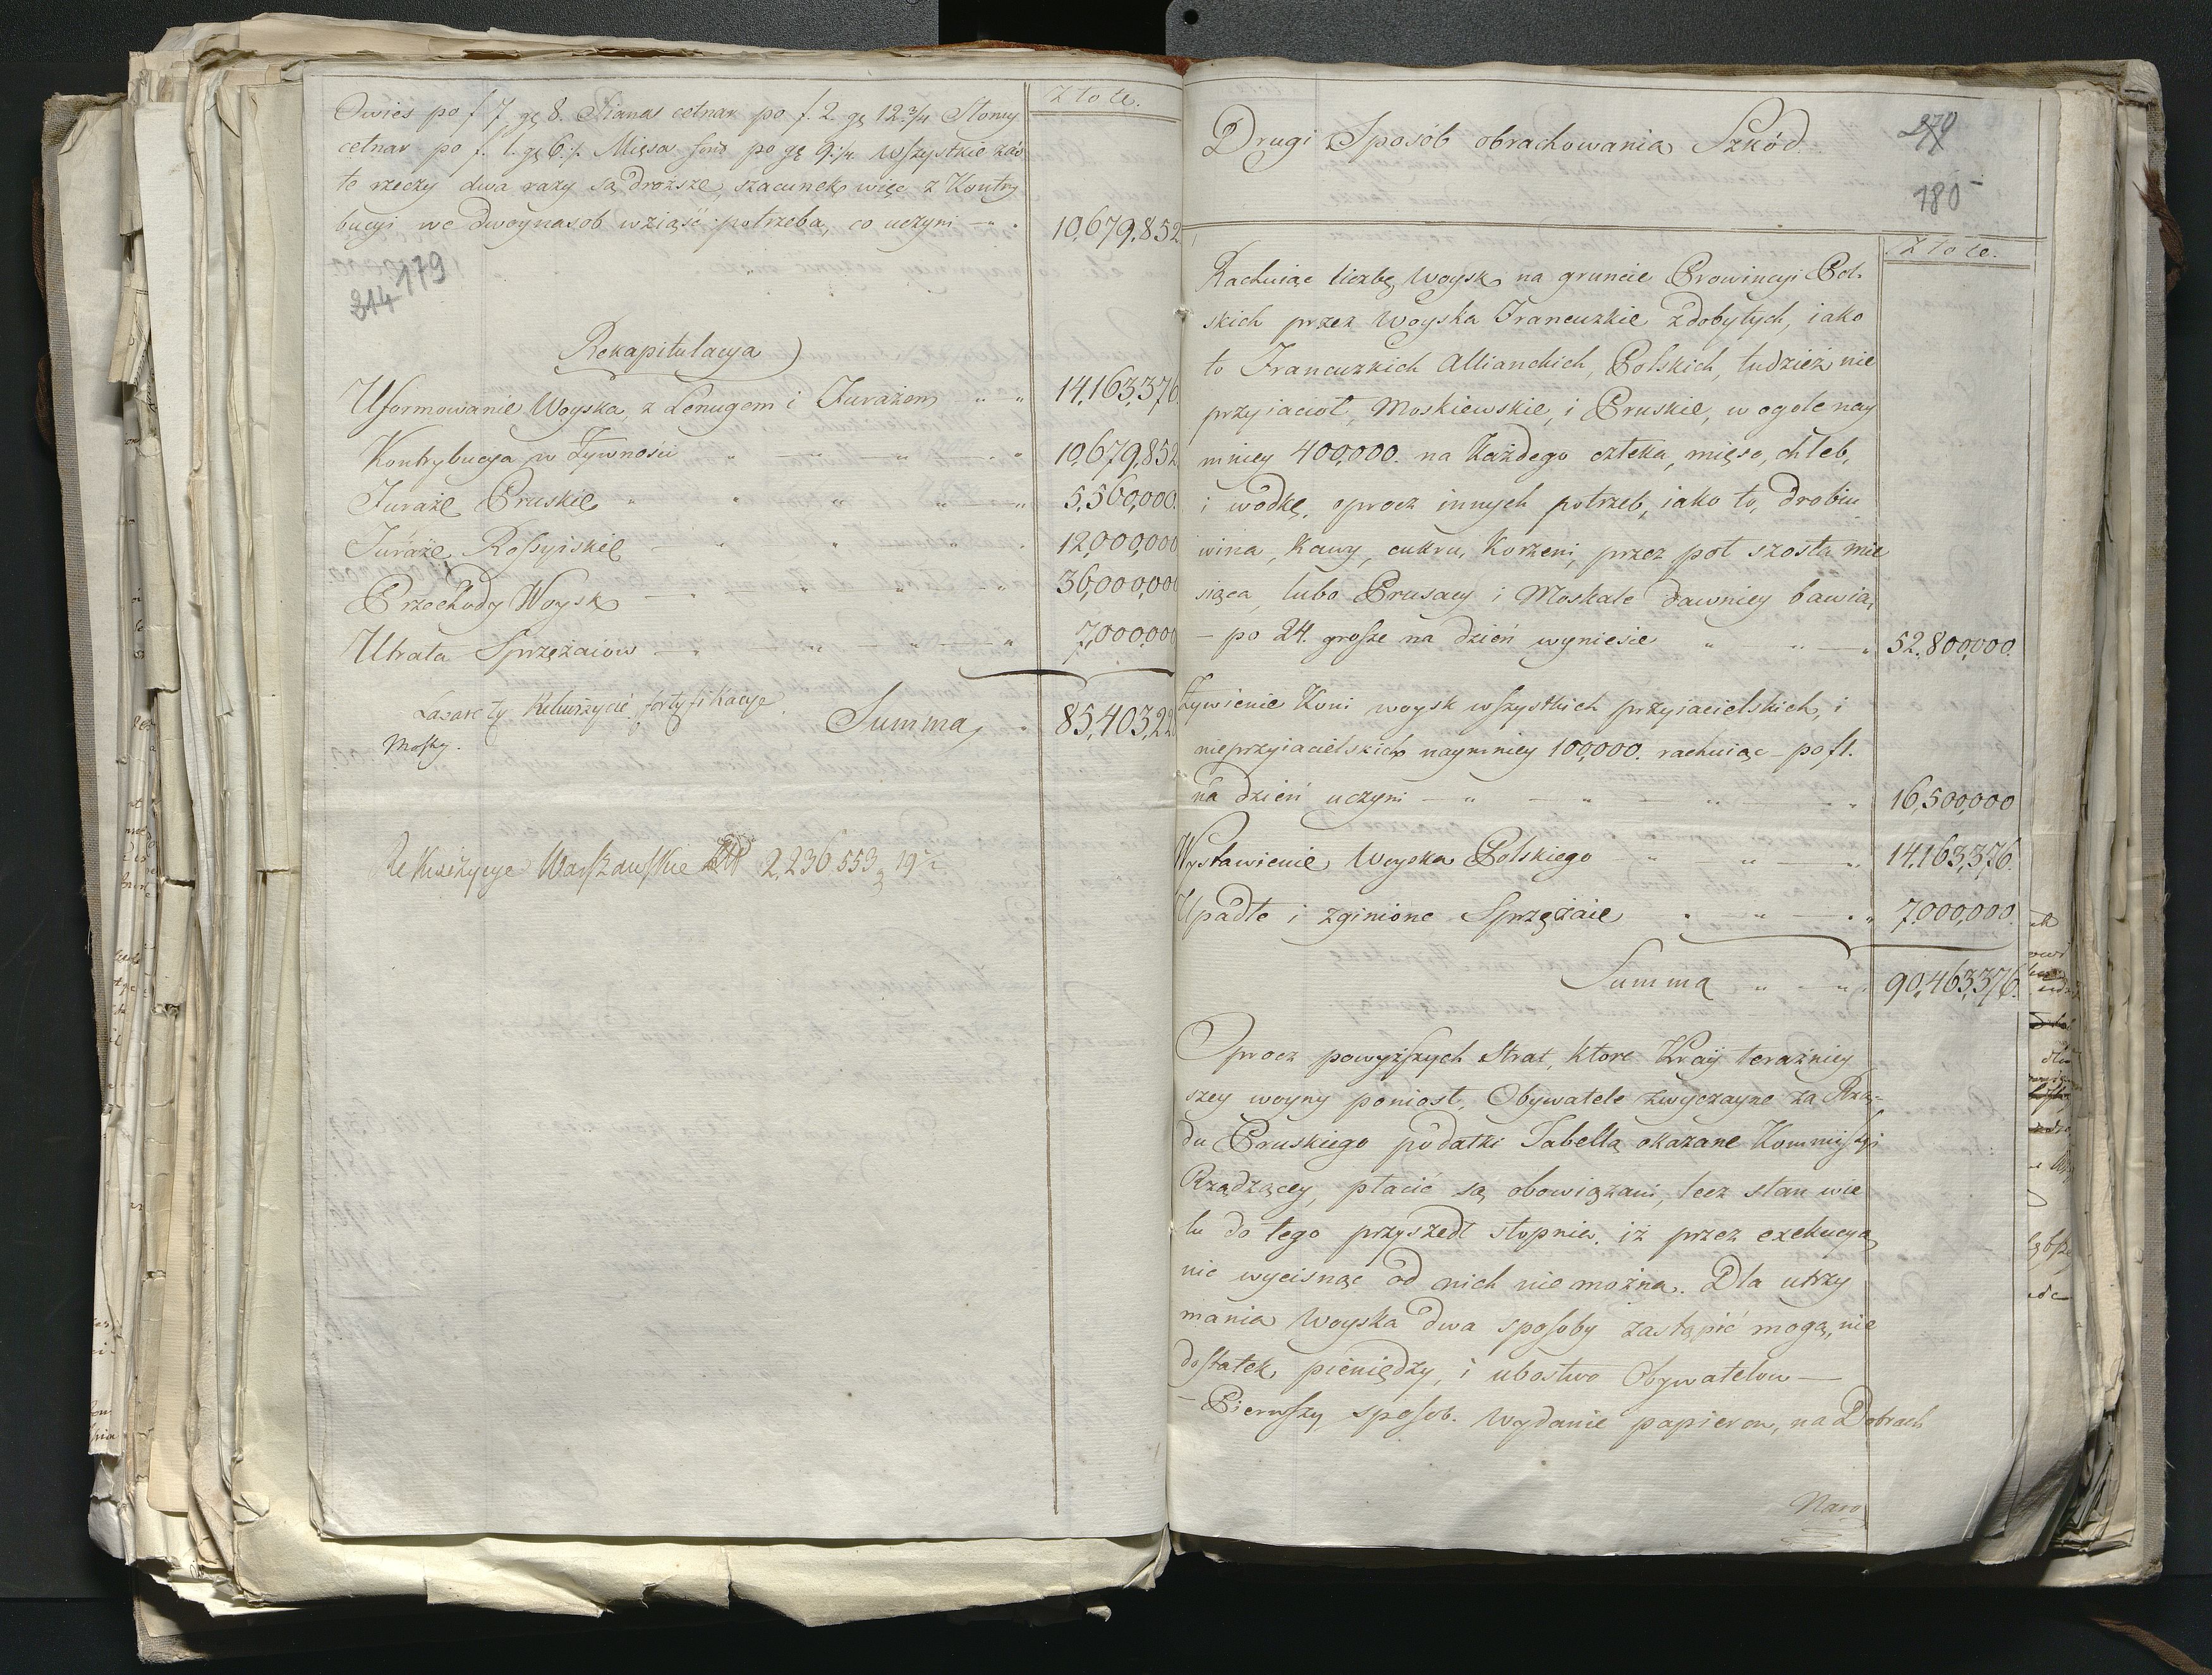 Złote.
Owies po f 7. gę 8. Siana cetnar po f. 2. gę 12 3/4 Słomy
cetnar po f. 1. gę 6 Mięsa funt po gę 9 1/4 Wszystkie
te rzeczy dwa razy są droższe, szacunek więc z Kontry
bucyi we dwoynasob wziąść potrzeba, co uczyni
10,679,852
179
214
Rekapitulacya
Uformowanie Woyska, z Lenugem i Furażem 14,163,376.
Kontrybucya w Żywności 10,679,852
Furaże Pruskie 5,560,000.
Furaże Rossyiskie 12,000,000
Przechody Woysk 36,000,000
Utrata Sprzężaiow 7,000,000
Lazarety fortyfikacye.
Mosty.
Summa 85,403,22
Rekwizycye Warszawskie 2,236 553 19
Drugi Sposób obrachowania Szkód.
180
Złote.
Rachuiąc liczbę Woysk na gruncie Prowincyi Pol-
skich przez Woyska Francuzkie zdobytych, iako
to Francuzkich Allianckich, Polskich, tudzież nie
przyiacioł, Moskiewskie, i Pruskie, w ogole nay
mniey 400,000. na Każdego człeka, mięso, chleb,
i wódkę, oprocz innych potrzeb, iako to, drobiu
wina, Kawy, cukru, Korzeni, przez poł szosta mie
siąca, lubo Prusacy i Moskale dawniey bawią,
– po 24. grosze na dzień wyniesie 52,800,000.
Żywienie Koni woysk wszystkich przyiacielskich, i
nieprzyiacielskich naymniey 100,000. rachuiąc po f 1.
na dzień uczyni 16,500,000
Wystawienie Woyska Polskiego 14,163,376.
Upadłe i zginione Sprzężaie 7,000,000.
Summa 90,463,376.
Oprocz powyższych Strat, ktore Kray teraźniey
szey woyny poniosł, Obywatele zwyczayne za Rzą-
du Pruskiego podatki Tabellą okazane Kommissyi
Rządzącey, płacić są obowiązani, lecz stan wie
lu do tego przyszedł stopnia, iż przez exekucyą
nic wycisnąć od nich nie można. Dla utrzy
mania Woyska dwa sposoby zastąpić mogą, nie
dostatek pieniędzy, i ubostwo Obywatelow —
– Pierwszy sposob. Wydanie papierow, na Dobrach
Naro